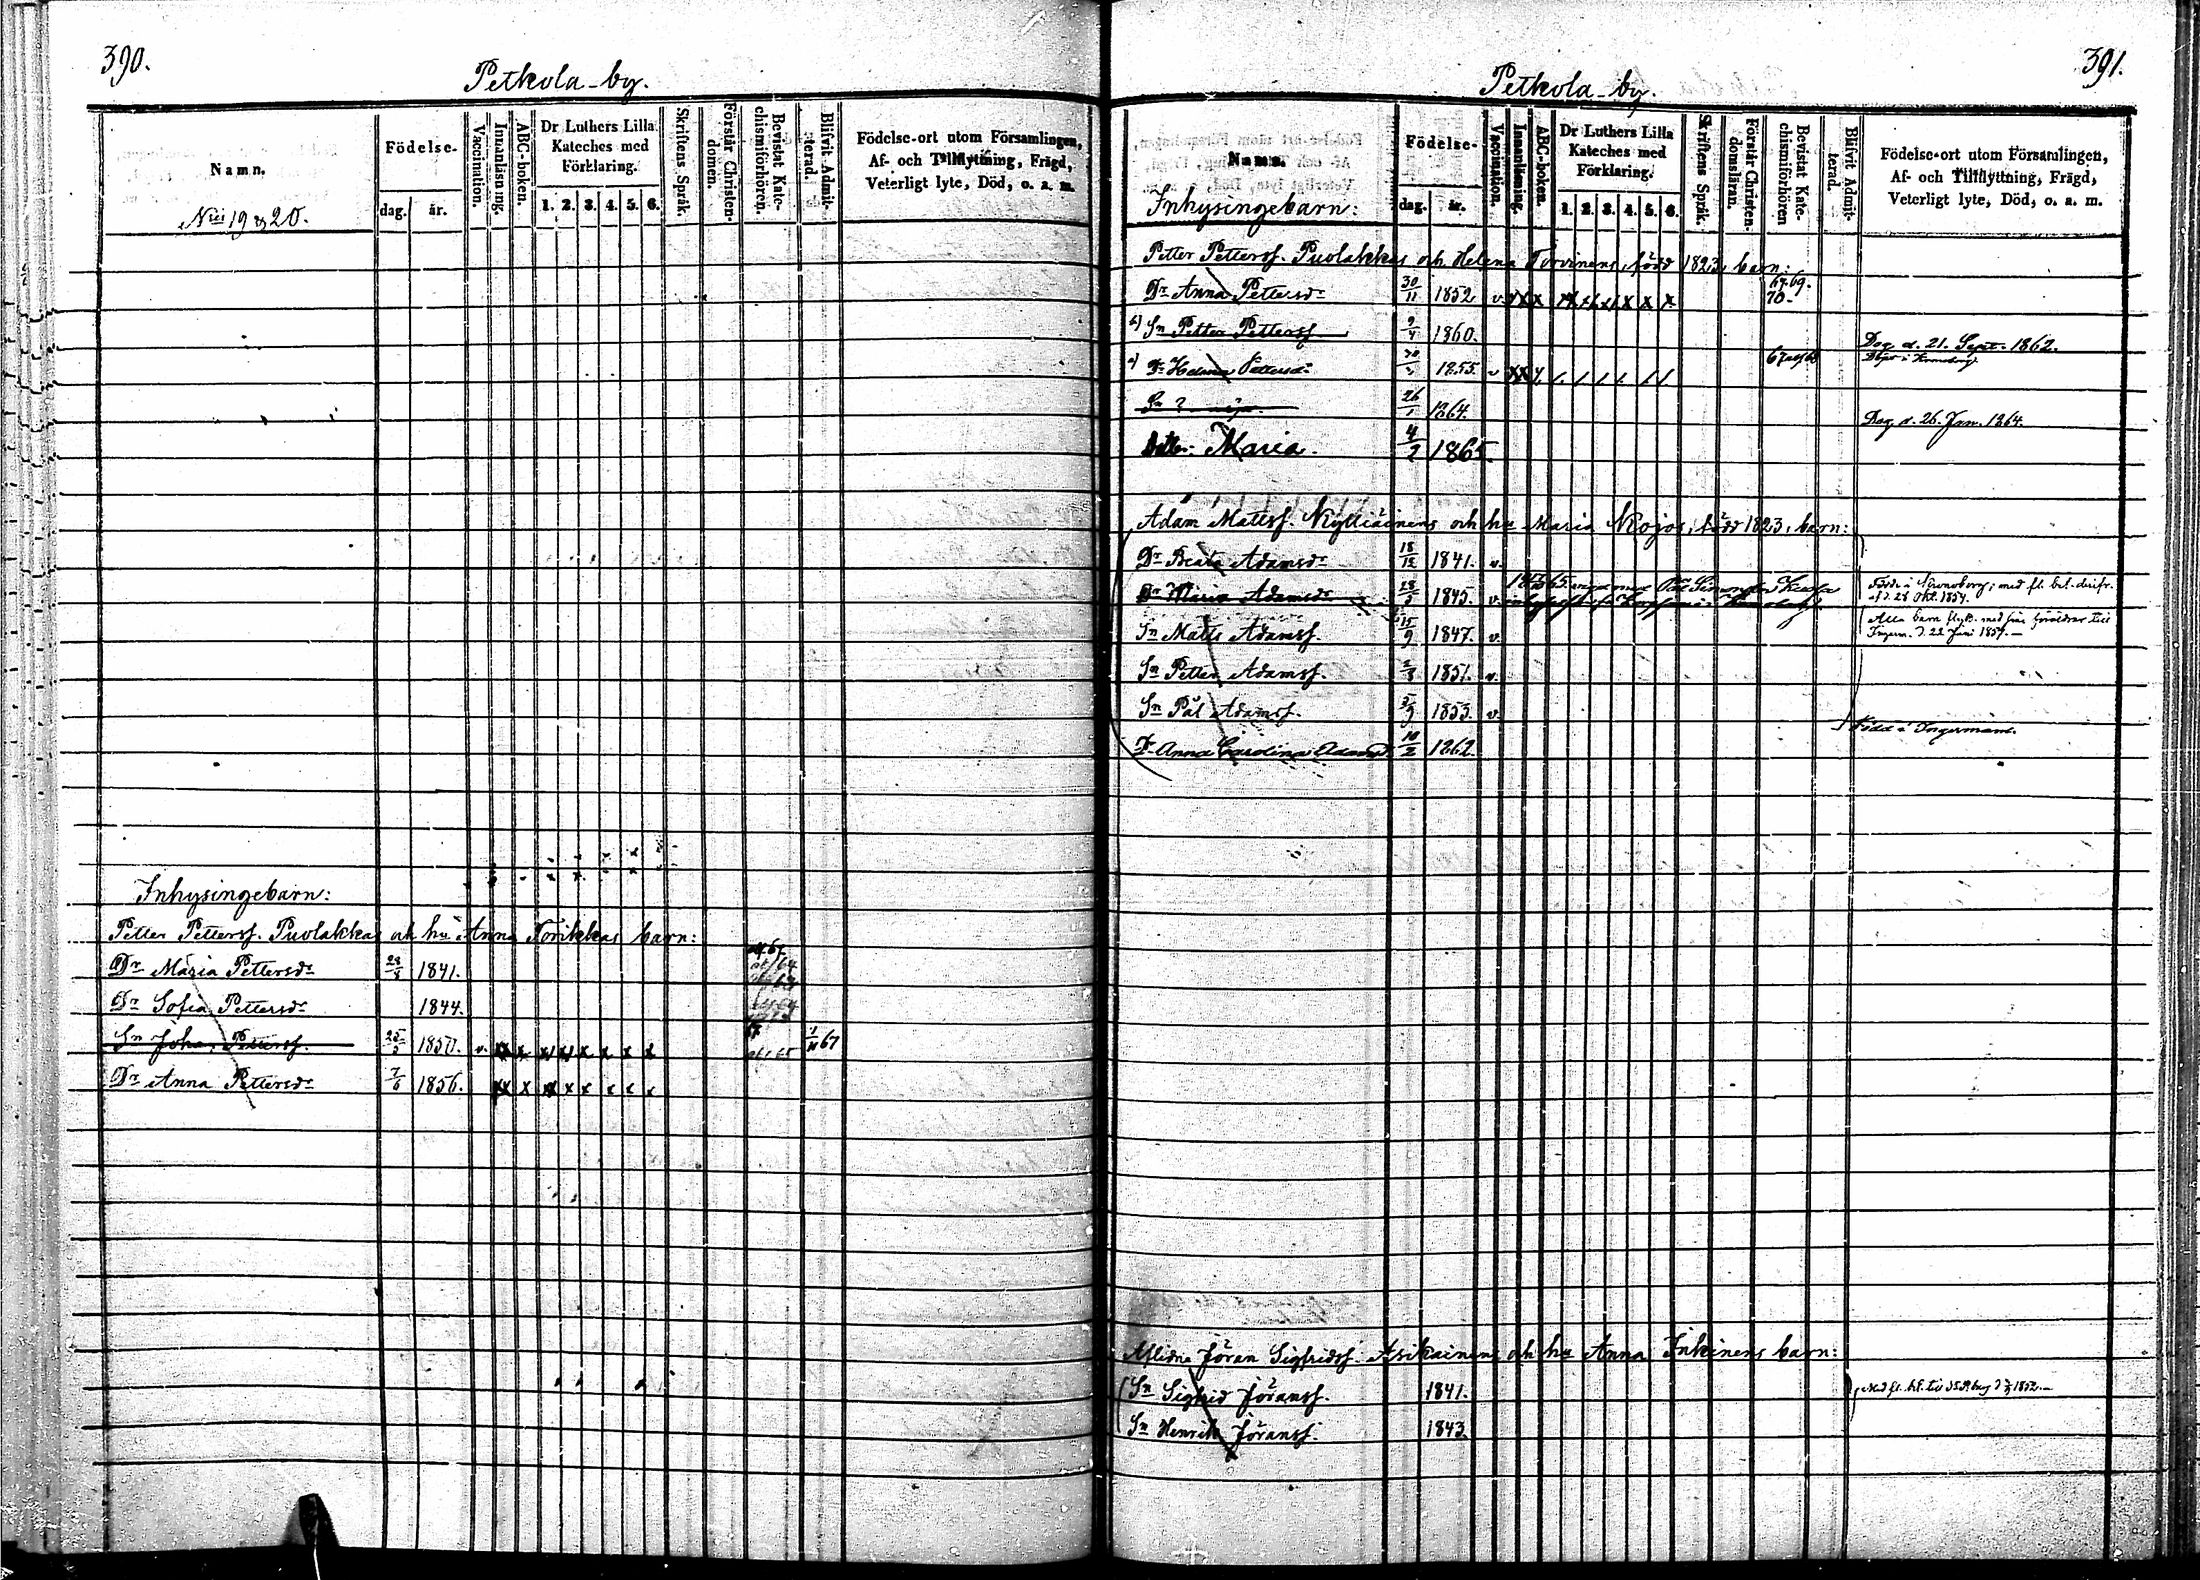 390.
Petkola-by.
Namn.
Födelse-
dag.
år.
Vaccination.
Innanläsning.
ABC-boken.
Dr Luthers Lilla
Kateches med
Förklaring.
1. 2. 3. 4. 5. 6.
Skriftens Språk.
Förstår Christen-
domen.
Bevistat Kate-
chismiförhören.
Blifvit Admit-
terad.
Födelse-ort utom Församlingen,
Af- och Tillflyttning, Frägd,
Veterligt lyte, Död, o. a. m.
19 & 20.
Inhysingebarn:
Petter Pettersf. Puolakkas och hu Anna Torikkas barn:
Dr Maria Pettersdr 28/8 1841.
Dr Sofia Pettersdr 1844.
Sn Johan Pettersf. 25/5 1850. v. 67
Dr Anna Pettersdr 7/6 1856.
391.
Petkola-by.
Namn.
Inhysingebarn:
Födelse-
dag.
år.
Vaccination.
Innanläsning.
ABC-boken.
Dr Luthers Lilla
Kateches med
Förklaring.
1. 2. 3. 4. 5. 6.
Skriftens Språk.
Förstår Christen-
domsläran.
Bevistat Kate-
chismiförhören
Blifvit Admit-
terad.
Födelse-ort utom Församlingen,
Af- och Tillflyttning, Frägd,
Veterligt lyte, Död, o. a. m.
Petter Pettersf. Puolakkas och Helena Torvinens, född 1823, barn:
Dr Anna Pettersdr 30/11 1852 v 67. 69. 70.
b) Sn Petter Pettersf 9/4 1860. Dog d. 21. Sept. 1862.
a) Dr Helena Pettersdr 1855. v
Sn 26/1 1864. Dog d. 26. Jan. 1864.
Maria. 4/2 1865.
Adam Mattsf. och hu Maria född 1823, barn:
Dr Beata Adamsdr 18/12 1841. v.
Dr Maria Adamsdr 1845. v.
Sn Matts Adamsf. 15/9 1847. v.
Alla barn flytt. med sina föräldrar till
Ingerm. d. 22 Juni 1857.
Sn Petter Adamsf. 2/8 1851. v.
Sn Pål Adamsf. 5/9 1853. v.
Dr Anna Carolina Adamsd. 10/2 1862. Född i Ingermanl.
Aflidne Jöran Sigfridsf. Asikainens och hu Anna Inkinens barn:
Sn Sigfrid Jöransf. 1841.
Sn Henrik Jöransf. 1843.